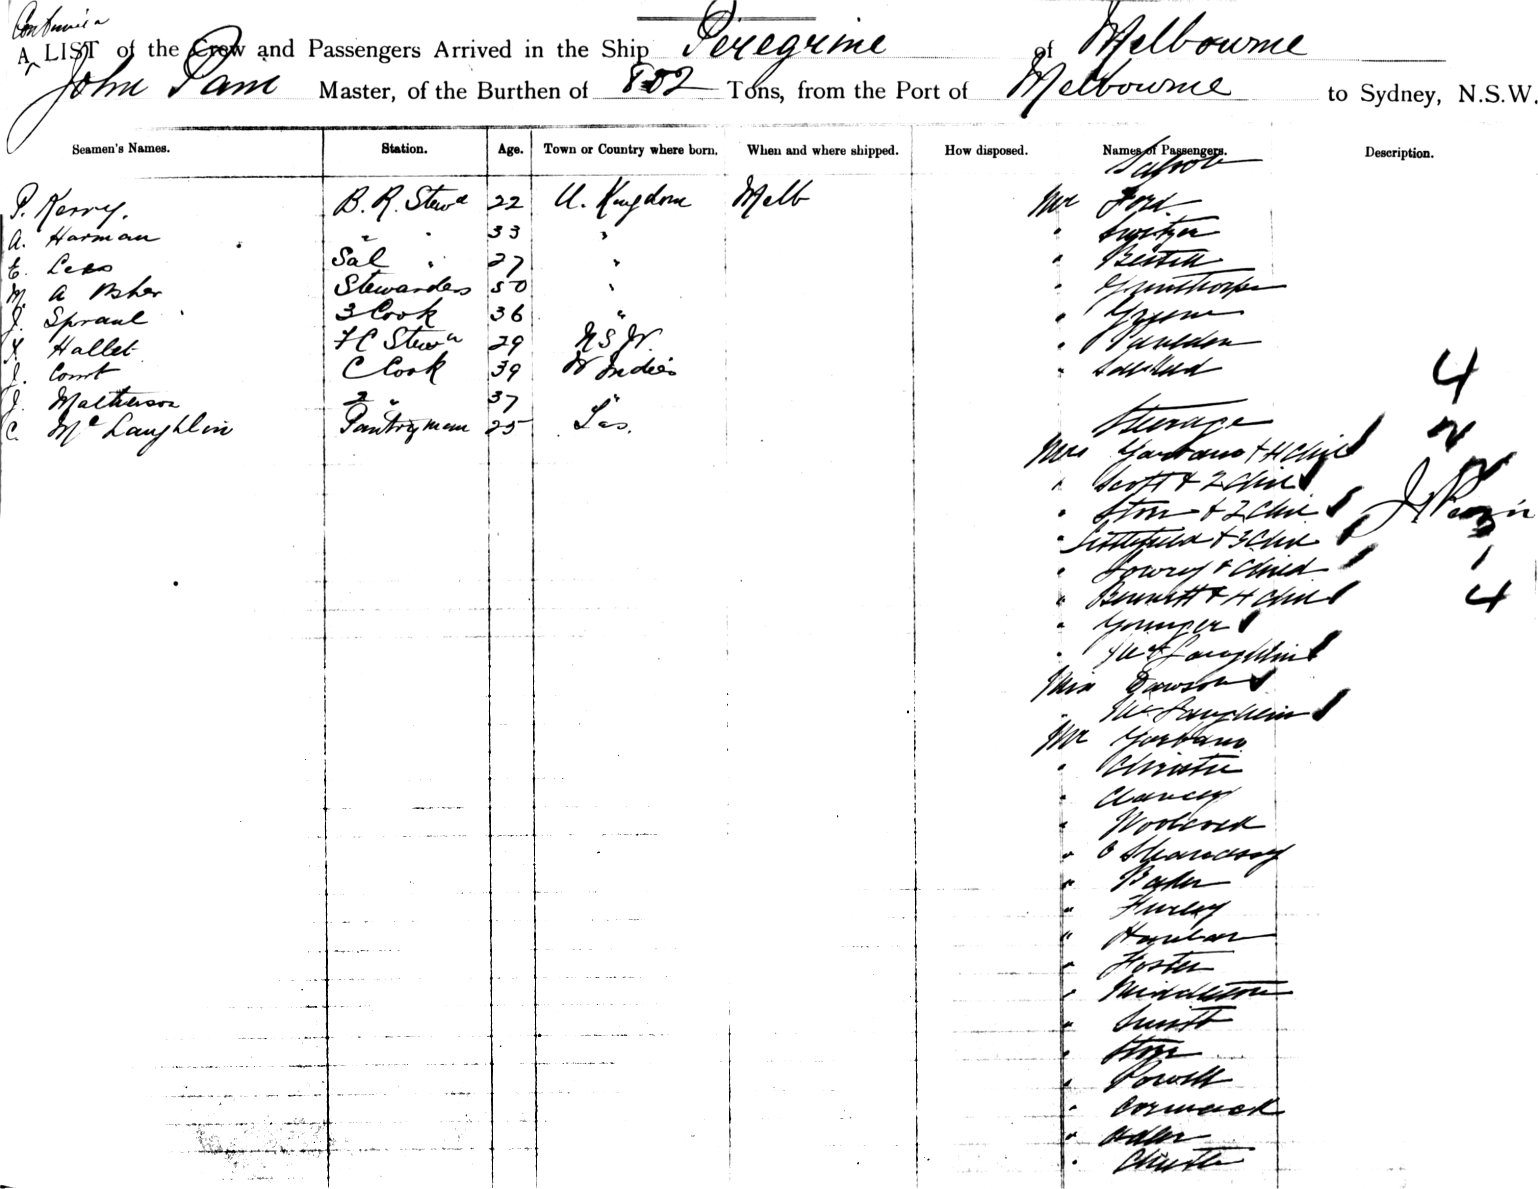 Continued
A LIST of the Crew and Passengers Arrived in the Ship Peregrine of Melbourne
John Pain Master, of the Burthen of 882 Tons, from the Port of Melbourne to Sydney, N.S.W.
Seamen's Names. Station. Age. Town or Country where born. When and where shipped. How disposed. Names of Passengers. Description.
Saloon
P. Kerry. B. R. Stewd 22 U. Kingdom Melb Mr Ford.
A. Harman " " 33 " "
E. Lees Sal " 27 " "
M. A Asher Stewardess 50 " "
J. Spraul 3 Cook 36 " "
Hallet F C Stewd 29 N S W. "
J. Comt C Cook 39 W Indies "
J. Matheson 2 " 37 "
Steerage
C. McLaughlin Pantryman 25 Tas.
Mrs + 4 Chil
" Scott + 2 Chil
" Storr + 2 Chil
" Littlefield + 3 Chil
" Lowrey + Child
" Bennett + 4 Chil
" Younger
" McLaughlin
Miss Dawson
" McLaughlin
Mr
" Christie
" Clancey
" Woolcock
" O Shanassy
" Baker
" Hurley
"
" Foster
" Middleton
" Smith
" Storr
" Powell
" Cormack
" Adler
"
4
2
2
3
1
4